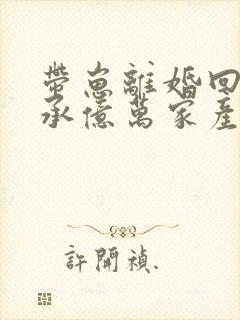 帶崽離婚回
承億萬家產
許開禎.